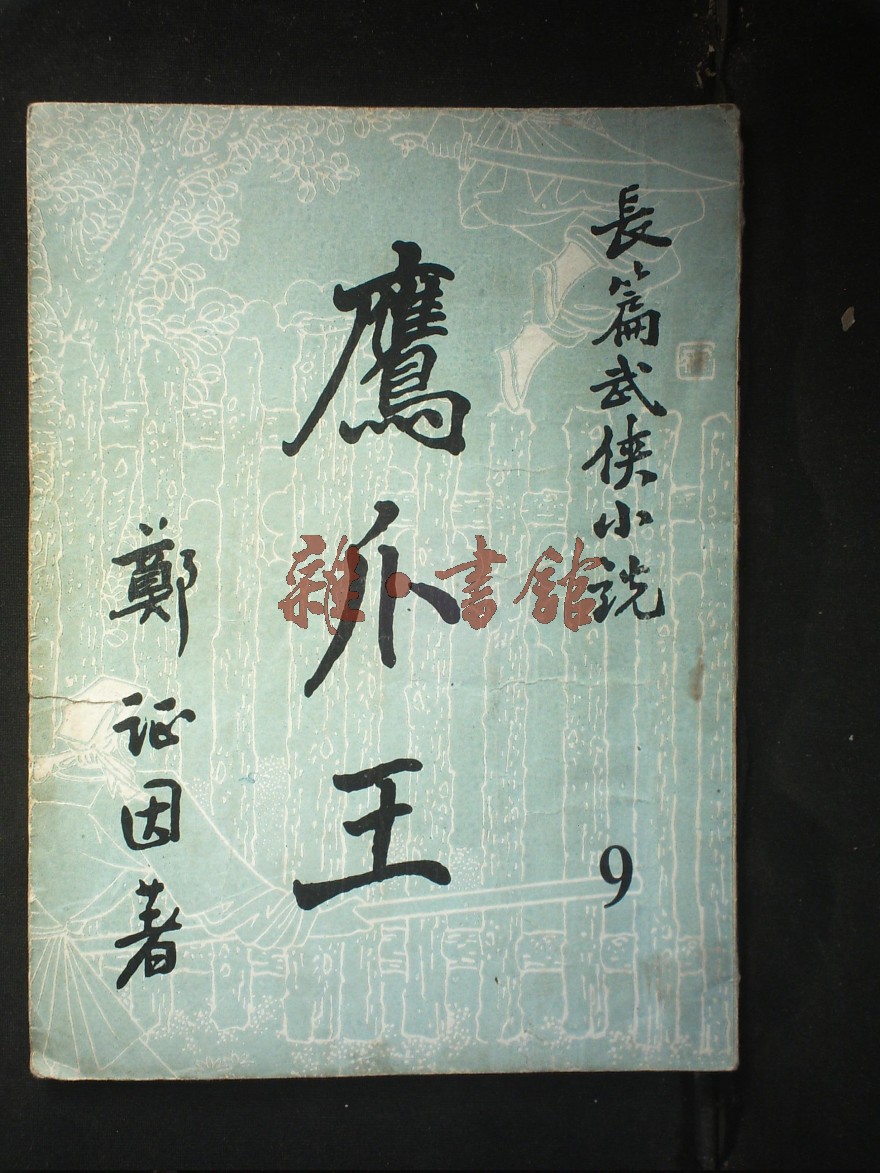 長篇武俠小説
9
鷹爪王
鄭证因著
雜·書館